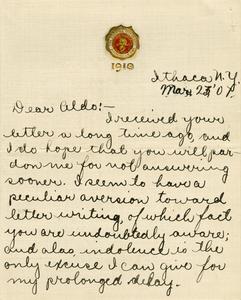 1910
Ithaca N.Y.
Dear Aldo:-
I received your
letter a long time ago, and
I do hope that you will par-
don me for not answering
sooner. I seem to have a
peculiar aversion toward
letter writing, of which fact
you are undoubtedly aware;
and alas, indolence is the
only excuse I can give for
my prolonged delay.